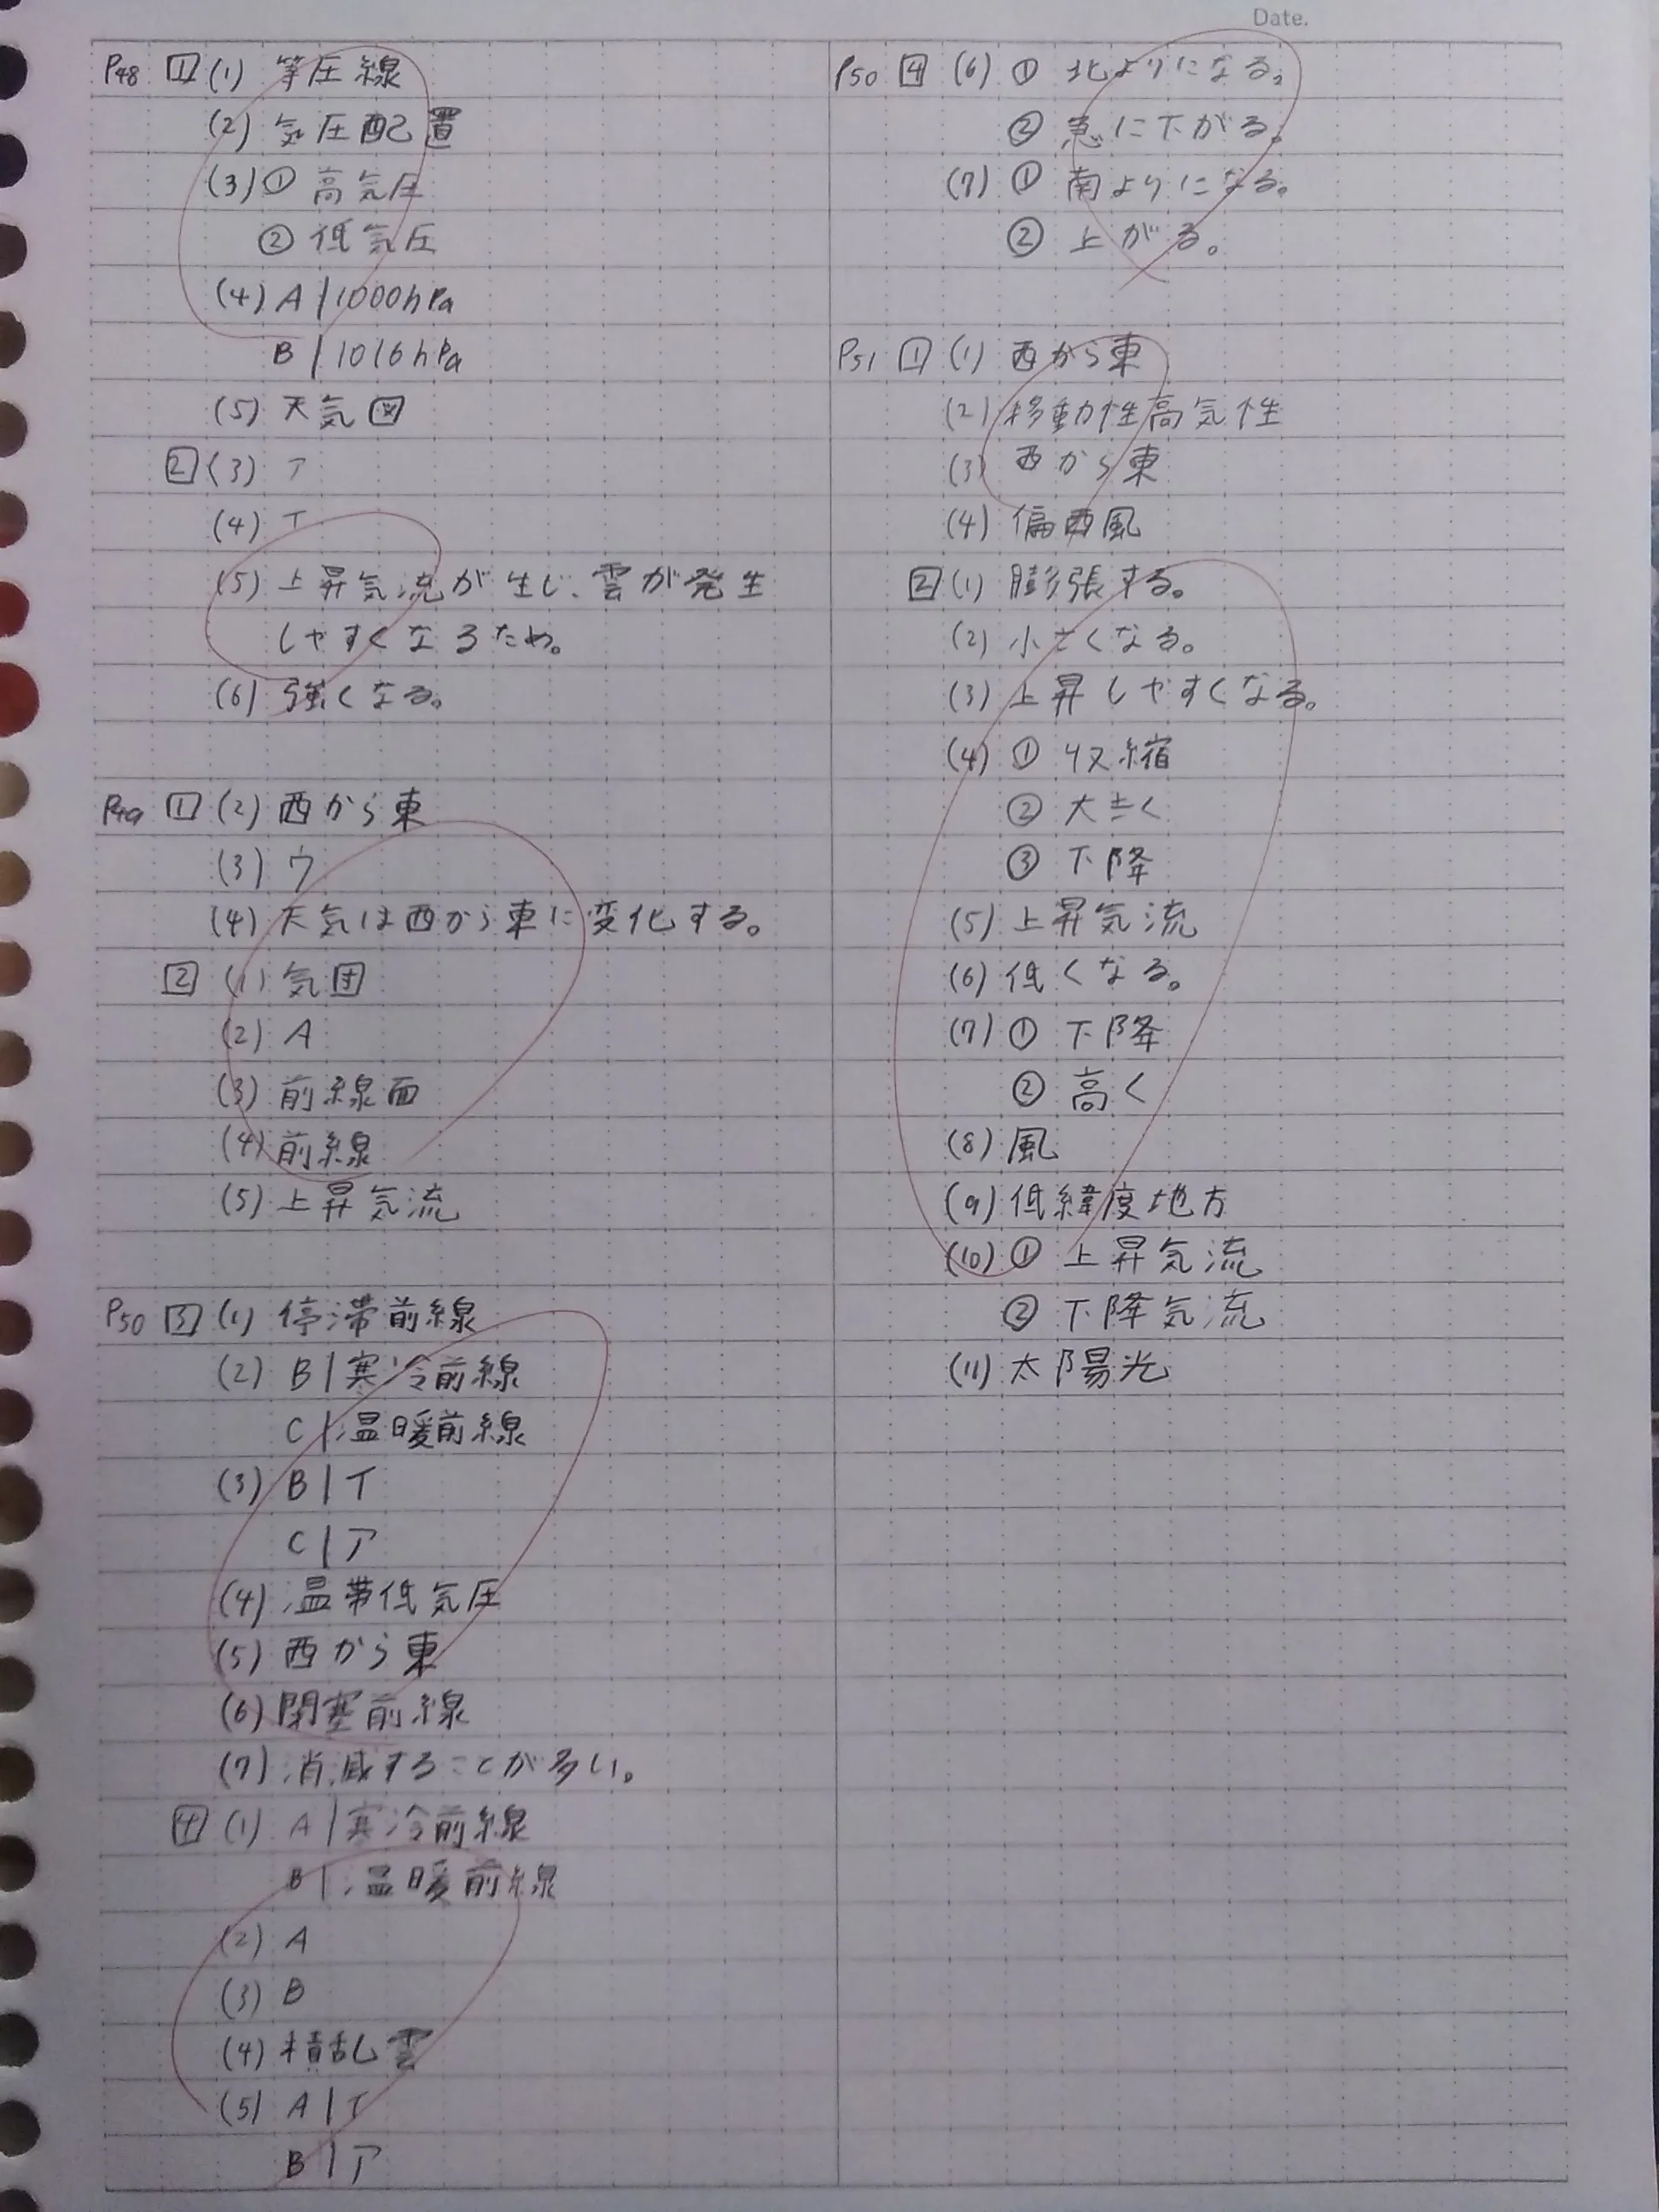 Date.
P48 1 (1) 等圧線
(2) 気圧配置
(3) ① 高気圧
② 低気圧
(4) A | 1000hPa
B | 1016hPa
(5) 天気図
2 (3) ア
(4) イ
(5) 上昇気流が生じ、雲が発生
しやすくなるため。
(6) 強くなる。
P49 1 (2) 西から東
(3) ウ
(4) 天気は西から東に変化する。
2 (1) 気団
(2) A
(3) 前線面
(4) 前線
(5) 上昇気流
P50 3 (1) 停滞前線
(2) B | 寒冷前線
C | 温暖前線
(3) B | イ
C | ア
(4) 温帯低気圧
(5) 西から東
(6) 閉塞前線
(7) 消滅することが多い。
4 (1) A | 寒冷前線
B | 温暖前線
(2) A
(3) B
(4) 積乱雲
(5) A | イ
B | ア
P50 4 (6) ① 北よりになる。
② 急に下がる。
(7) ① 南よりになる。
② 上がる。
P51 1 (1) 西から東
(2) 移動性高気性
(3) 西から東
(4) 偏西風
2 (1) 膨張する。
(2) 小さくなる。
(3) 上昇しやすくなる。
(4) ① 収縮
② 大きく
③ 下降
(5) 上昇気流
(6) 低くなる。
(7) ① 下降
② 高く
(8) 風
(9) 低緯度地方
(10) ① 上昇気流
② 下降気流
(11) 太陽光